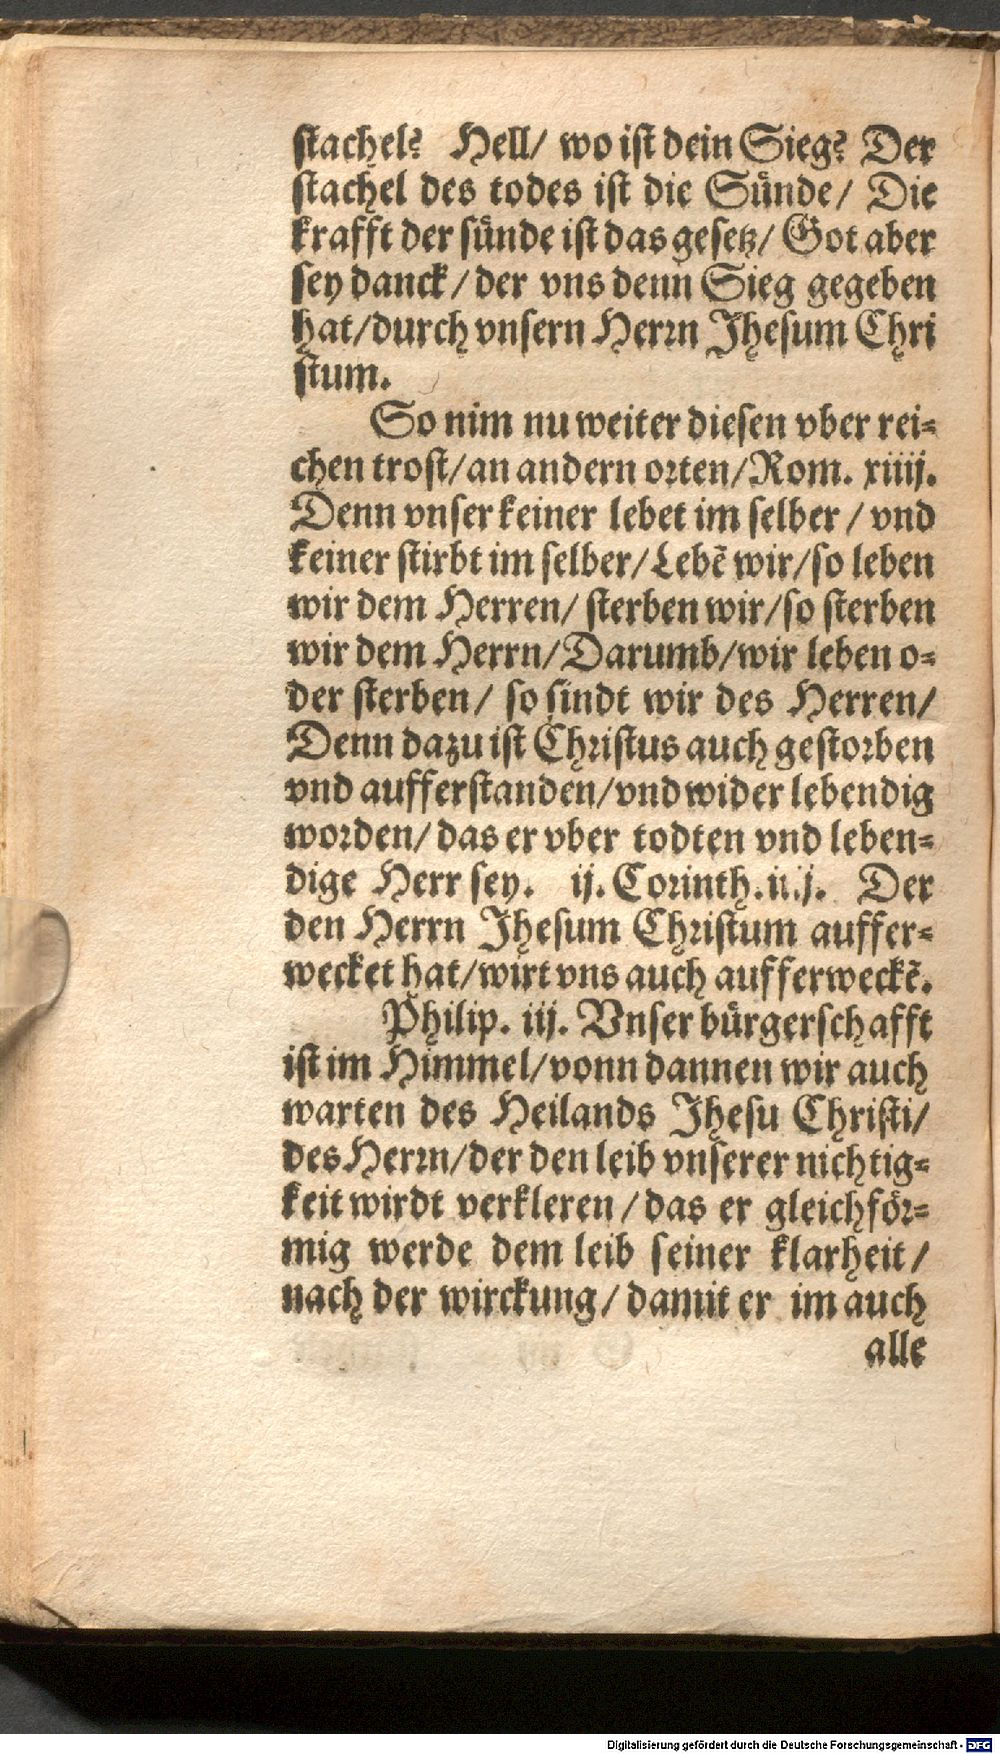 stachel? Hell/ wo ist dein Sieg? Der
stachel des todes ist die Sünde/ Die
krafft der sünde ist das gesetz/ Got aber
sey danck/ der vns denn Sieg gegeben
hat/durch vnsern Herrn Jhesum Chri
stum.
So nim nu weiter diesen vber rei-
chen trost/an andern orten/Rom. xiiij.
Denn vnser keiner lebet im selber/ vnd
keiner stirbt im selber/Lebē wir/so leben
wir dem Herren/ sterben wir/so sterben
wir dem Herrn/Darumb/wir leben o-
der sterben/ so sindt wir des Herren/
Denn dazu ist Christus auch gestorben
vnd aufferstanden/vnd wider lebendig
worden/ das er vber todten vnd leben-
dige Herr sey. ij. Corinth. Der
den Herrn Jhesum Christum auffer-
wecket hat/wirt vns auch aufferweckē.
Philip. iij. Vnser bürgerschafft
ist im Himmel/vonn dannen wir auch
warten des Heilands Jhesu Christi/
des Herrn/der den leib vnserer nichtig-
keit wirdt verkleren/das er gleichför-
mig werde dem leib seiner klarheit/
nach der wirckung/damit er im auch
alle
Digitalisierung gefördert durch die Deutsche Forschungsgemeinschaft - DFG